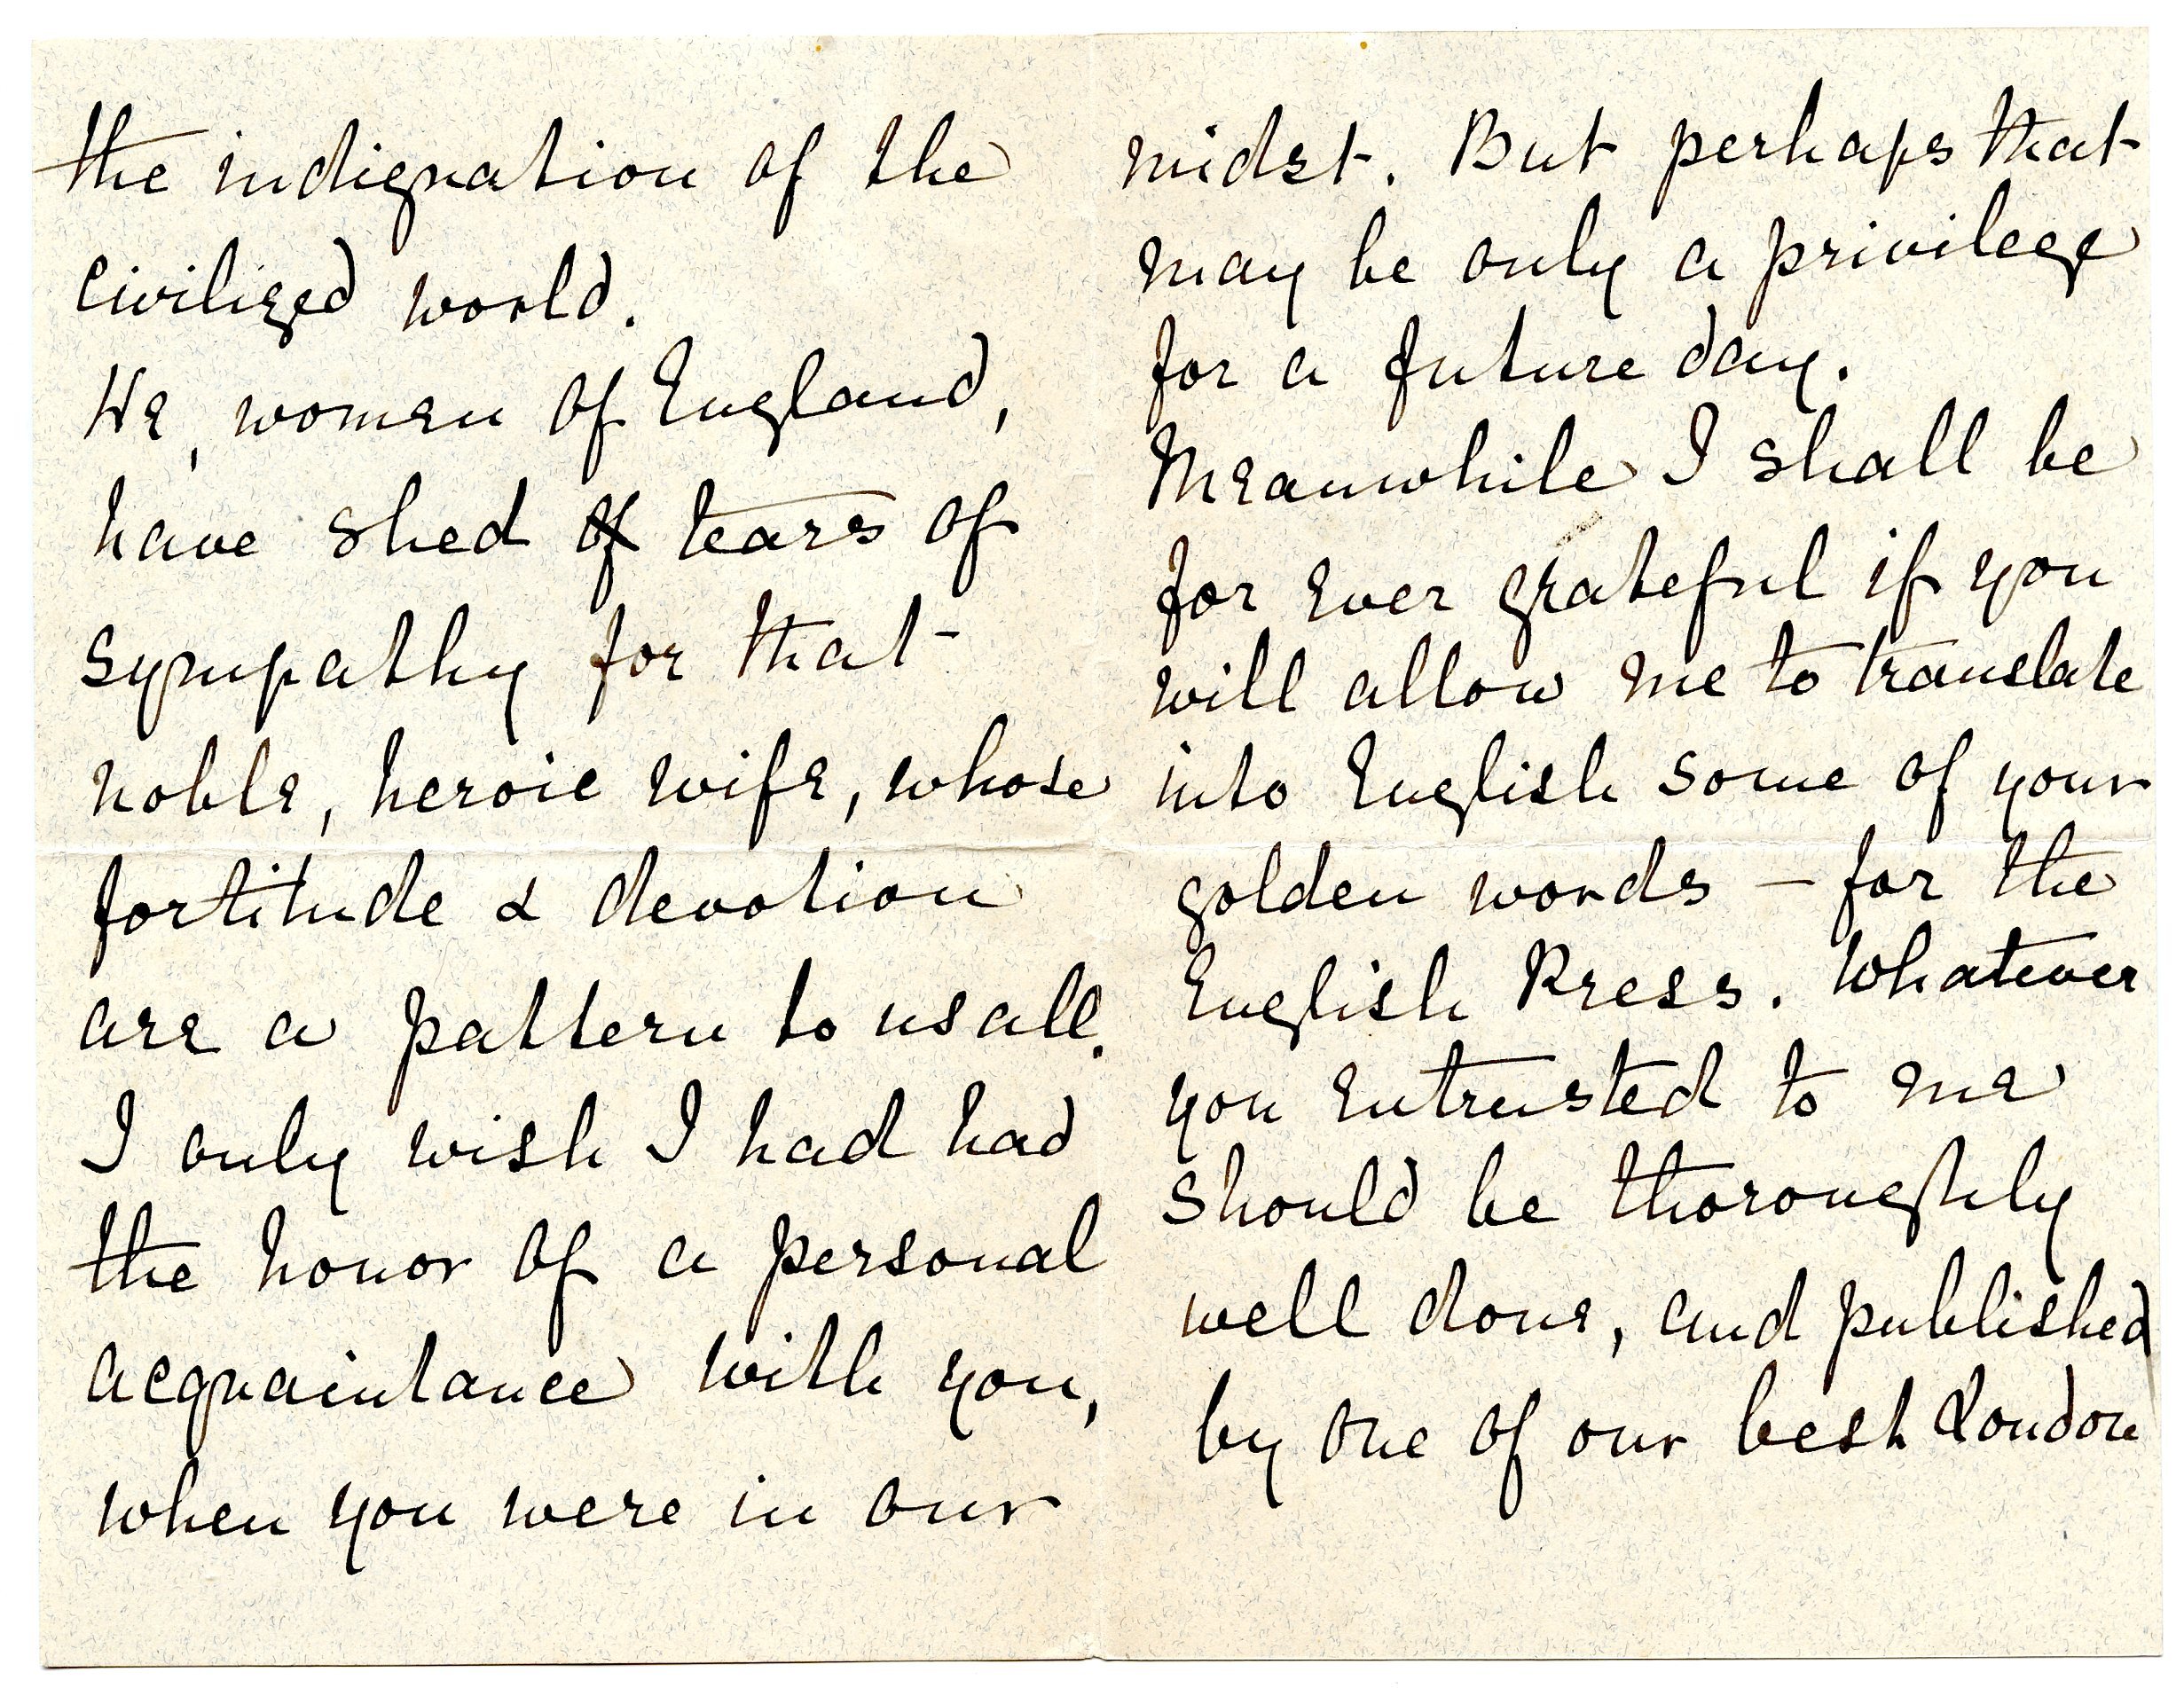 the indignation of the
civilized world.
We, women of England,
have shed of tears of
sympathy for that
noble, heroic wife, whose
fortitude & devotion
are a pattern to us all.
I only wish I had had
the honor of a personal
acquaintance with you,
when you were in our
midst. But perhaps that
may be only a privilege
for a future day.
Meanwhile I shall be
for ever grateful if you
will allow me to translate
into English some of your
golden words – for the
English Press. Whatever
you entrusted to me
should be thoroughly
well done, and published
by one of our best London